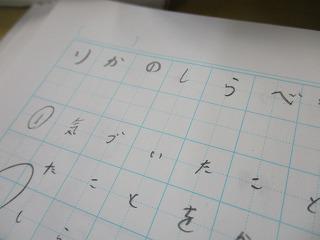 りかのしらべ
① 気づいたこと
たことをか
しら